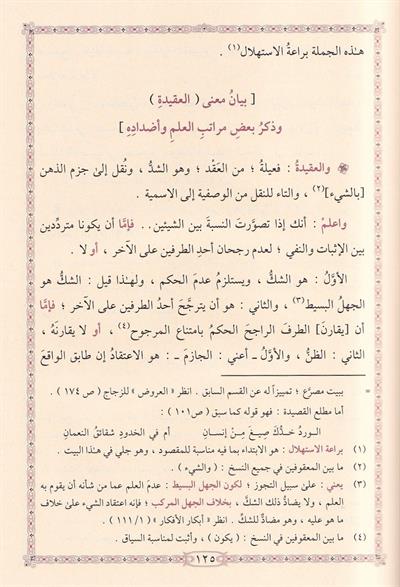 هـٰذه الجملة براعةُ الاستهلال(١) .
[ بيانُ معنى ( العقيدةِ )
وذكرُ بعضِ مراتبِ العلمِ وأضدادِهِ ]
والعقيدةُ : فعيلةٌ ؛ من العَقْد ؛ وهو الشدُّ ، ونُقل إلى جزم الذهن
[بالشيء](٢) ، والتاء للنقل من الوصفية إلى الاسمية .
واعلمْ : أنك إذا تصوَّرتَ النسبةَ بين الشيئين . . فإمَّا أن يكونا متردِّدين
بين الإثبات والنفي ؛ لعدم رجحان أحدِ الطرفين على الآخر ، أو لا .
الأوَّلُ : هو الشكُّ ، ويستلزمُ عدمَ الحكم ، ولهـٰذا قيل : الشكُّ هو
الجهلُ البسيط(٣) ، والثاني : هو أن يترجَّحَ أحدُ الطرفين على الآخر ؛ فإمَّا
أن [يقارنَ] الطرفَ الراجحَ الحكمُ بامتناع المرجوح(٤) ، أو لا يقارنَهُ ،
الثاني : الظنُّ ، والأوَّلُ ـ أعني : الجازمَ ـ : هو الاعتقادُ إن طابق الواقعَ
= ببيت مصرَّع ؛ تمييزاً له عن القسم السابق . انظر « العروض » للزجاج ( ص ١٧٤ ) .
أما مطلع القصيدة : فهو قوله كما سبق ( ص ١٠١ ) :
الــوردُ خــدُّكَ صِيــغَ مِــنْ إنســانِ أم في الخدودِ شقائقُ النعمانِ
(١) براعة الاستهلال : هو الابتداء بما فيه مناسبة للمقصود ، وهو جلي في هذا البيت .
(٢) ما بين المعقوفين في جميع النسخ : ( والشيء ) .
(٣) يعني : على سبيل التجوز ؛ لكون الجهل البسيط : عدمَ العلم عما من شأنه أن يقوم به
العلم ، ولا يضادُّ ذلك الشكَّ ، بخلاف الجهل المركب ؛ فإنه اعتقاد الشيء على خلاف
ما هو عليه ، وهو مضادٌّ للشكِّ . انظر « أبكار الأفكار » ( ١/ ١١١ ) .
(٤) ما بين المعقوفين في النسخ : ( يكون ) ، وأثبت لمناسبة السياق .
١٢٥